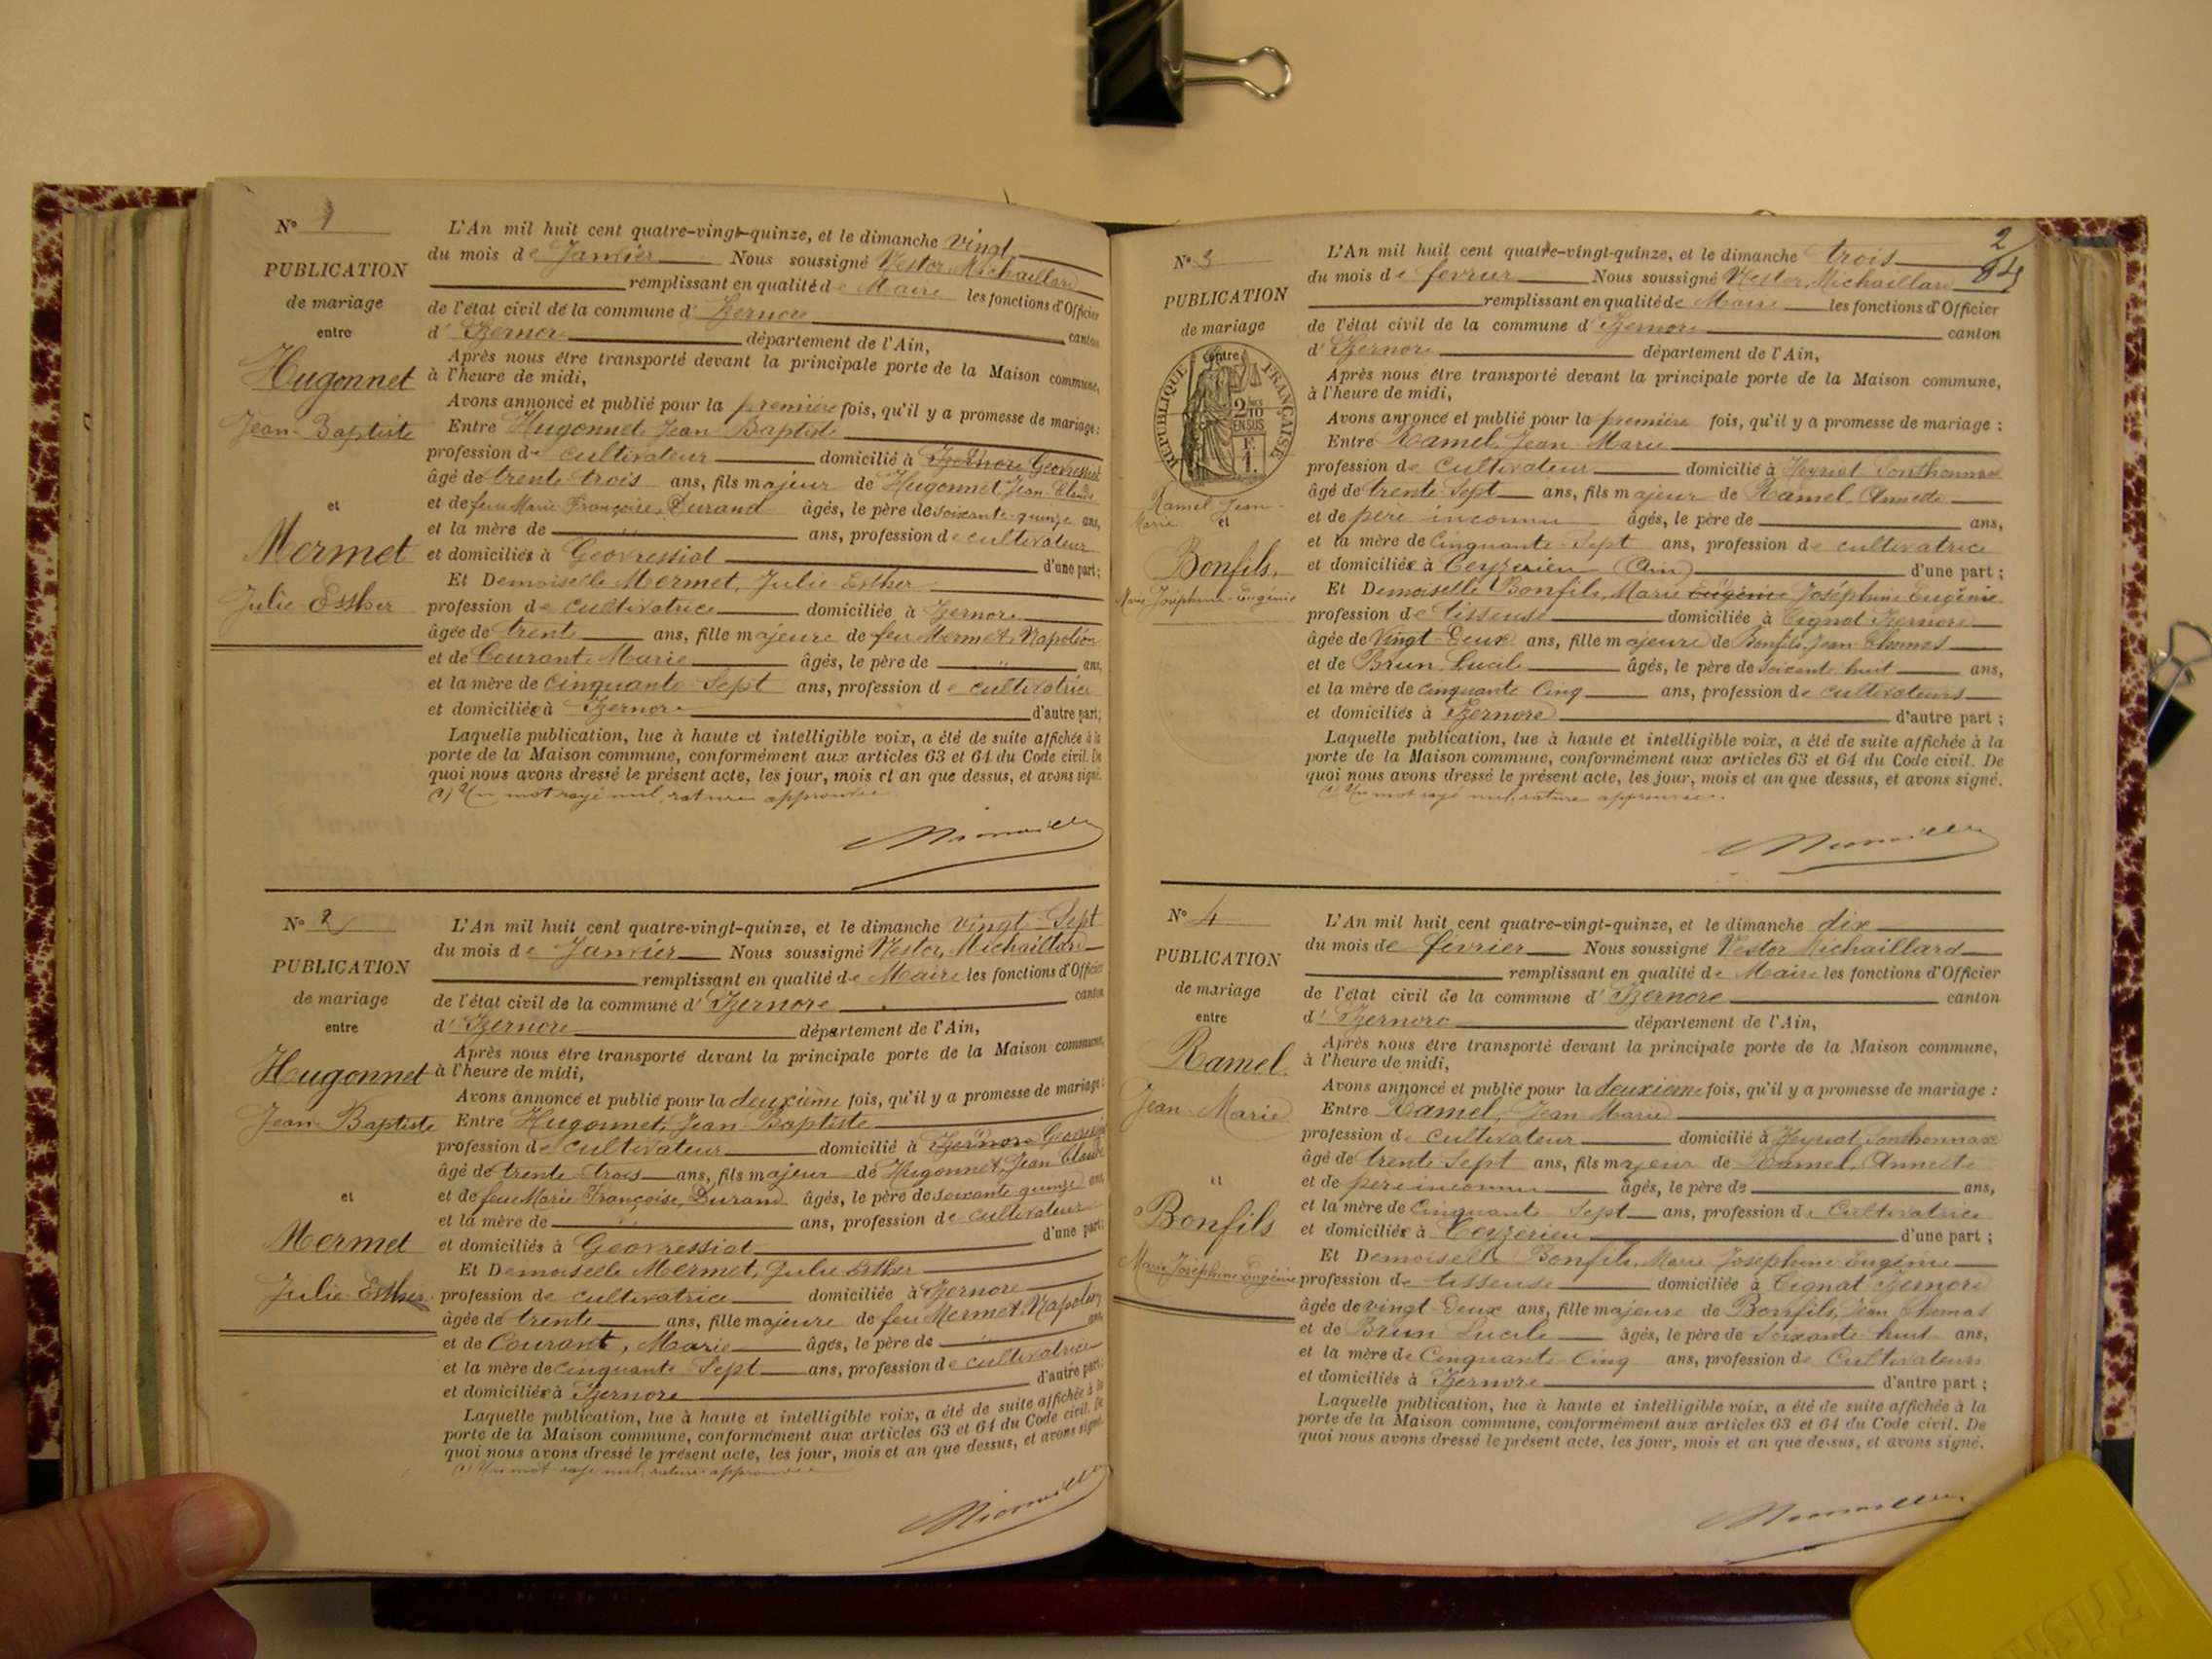 N° 1
PUBLICATION
de mariage
entre
Hugonnet
Jean-Baptiste
et
Mermet
Julie Esther
L'An mil huit cent quatre-vingt-quinze, et le dimanche vingt
du mois de Janvier Nous soussigné Nestor Michaillard
remplissant en qualité de Maire les fonctions d'Officier
de l'état civil de la commune d' Izernore
d' Izernore département de l'Ain, canton
Après nous être transporté devant la principale porte de la Maison commune,
à l'heure de midi,
Avons annoncé et publié pour la première fois, qu'il y a promesse de mariage :
Entre Hugonnet Jean Baptiste
profession de cultivateur domicilié à Izernore Geovressiat
âgé de trente trois ans, fils majeur de Hugonnet Jean-Claude
et de feue Marie Françoise Durand âgés, le père de soixante-quinze ans,
et la mère de " ans, profession de cultivateur
et domiciliés à Geovressiat d'une part ;
Et Demoiselle Mermet, Julie Esther
profession de cultivatrice domiciliée à Izernore
âgée de trente ans, fille majeure de feu Mermet, Napoléon
et de Courant Marie âgés, le père de " ans,
et la mère de cinquante Sept ans, profession de cultivatrice
et domiciliés à Izernore d'autre part ;
Laquelle publication, lue à haute et intelligible voix, a été de suite affichée à la
porte de la Maison commune, conformément aux articles 63 et 64 du Code civil. De
quoi nous avons dressé le présent acte, les jour, mois et an que dessus, et avons signé.
(1) Un mot rayé nul, rature approuvée
N° 2
PUBLICATION
de mariage
entre
Hugonnet
Jean-Baptiste
et
Mermet
Julie-Esther
L'An mil huit cent quatre-vingt-quinze, et le dimanche vingt-Sept
du mois de Janvier Nous soussigné Nestor, Michaillard
remplissant en qualité de Maire les fonctions d'Officier
de l'état civil de la commune d' Izernore canton
d' Izernore département de l'Ain,
Après nous être transporté devant la principale porte de la Maison commune,
à l'heure de midi,
Avons annoncé et publié pour la deuxième fois, qu'il y a promesse de mariage :
Entre Hugonnet, Jean-Baptiste
profession de cultivateur domicilié à Izernore Geovressiat
âgé de trente-trois ans, fils majeur de Hugonnet, Jean Claude
et de feue Marie Françoise, Durand âgés, le père de soixante quinze ans,
et la mère de " ans, profession de cultivateur
et domiciliés à Geovressiat d'une part ;
Et Demoiselle Mermet, Julie Esther
profession de cultivatrice domiciliée à Izernore
âgée de trente ans, fille majeure de feu Mermet Napoléon
et de Courant, Marie âgés, le père de " ans,
et la mère de cinquante Sept ans, profession de cultivatrice
et domiciliés à Izernore d'autre part ;
Laquelle publication, lue à haute et intelligible voix, a été de suite affichée à la
porte de la Maison commune, conformément aux articles 63 et 64 du Code civil. De
quoi nous avons dressé le présent acte, les jour, mois et an que dessus, et avons signé.
(1) Un mot rayé nul, rature approuvée
2
N° 3
PUBLICATION
de mariage
entre
RÉPUBLIQUE FRANÇAISE
2/10 EN SUS
F. 1.
Ramel Jean-
Marie
et
Bonfils,
Marie Joséphine-Eugénie
L'An mil huit cent quatre-vingt-quinze, et le dimanche trois
du mois de fevrier Nous soussigné Nestor, Michaillard
remplissant en qualité de Maire les fonctions d'Officier
de l'état civil de la commune d' Izernore canton
d' Izernore département de l'Ain,
Après nous être transporté devant la principale porte de la Maison commune,
à l'heure de midi,
Avons annoncé et publié pour la première fois, qu'il y a promesse de mariage :
Entre Ramel, Jean-Marie
profession de cultivateur domicilié à Heyriat Sonthonnax
âgé de trente-Sept ans, fils majeur de Ramel
et de père inconnu âgés, le père de ans,
et la mère de Cinquante-Sept ans, profession de cultivatrice
et domiciliés à Ceyzerieu (Ain) d'une part ;
Et Demoiselle Bonfils, Marie Eugénie Joséphine Eugénie
profession de tisseuse domiciliée à Tignat Izernore
âgée de Vingt-Deux ans, fille majeure de Bonfils, Jean-Thomas
et de Brun Lucile âgés, le père de soixante huit ans,
et la mère de cinquante Cinq ans, profession de cultivateurs
et domiciliés à Izernore d'autre part ;
Laquelle publication, lue à haute et intelligible voix, a été de suite affichée à la
porte de la Maison commune, conformément aux articles 63 et 64 du Code civil. De
quoi nous avons dressé le présent acte, les jour, mois et an que dessus, et avons signé.
(1) Un mot rayé nul, rature approuvée.
N° 4
PUBLICATION
de mariage
entre
Ramel
Jean-Marie
et
Bonfils
Marie Joséphine Eugénie
L'An mil huit cent quatre-vingt-quinze, et le dimanche dix
du mois de février Nous soussigné Nestor Michaillard
remplissant en qualité de Maire les fonctions d'Officier
de l'état civil de la commune d' Izernore canton
d' Izernore département de l'Ain,
Après nous être transporté devant la principale porte de la Maison commune,
à l'heure de midi,
Avons annoncé et publié pour la deuxième fois, qu'il y a promesse de mariage :
Entre Ramel, Jean-Marie
profession de cultivateur domicilié à Heyriat, Sonthonnax
âgé de trente Sept ans, fils majeur de Ramel,
et de père inconnu âgés, le père de ans,
et la mère de Cinquante-Sept ans, profession de Cultivatrice
et domiciliés à Ceyzerieu d'une part ;
Et Demoiselle Bonfils, Marie Joséphine Eugénie
profession de tisseuse domiciliée à Tignat Izernore
âgée de vingt-Deux ans, fille majeure de Bonfils, Jean Thomas
et de Brun Lucile âgés, le père de Soixante-huit ans,
et la mère de Cinquante-Cinq ans, profession de Cultivateurs
et domiciliés à Izernore d'autre part ;
Laquelle publication, lue à haute et intelligible voix, a été de suite affichée à la
porte de la Maison commune, conformément aux articles 63 et 64 du Code civil. De
quoi nous avons dressé le présent acte, les jour, mois et an que dessus, et avons signé.